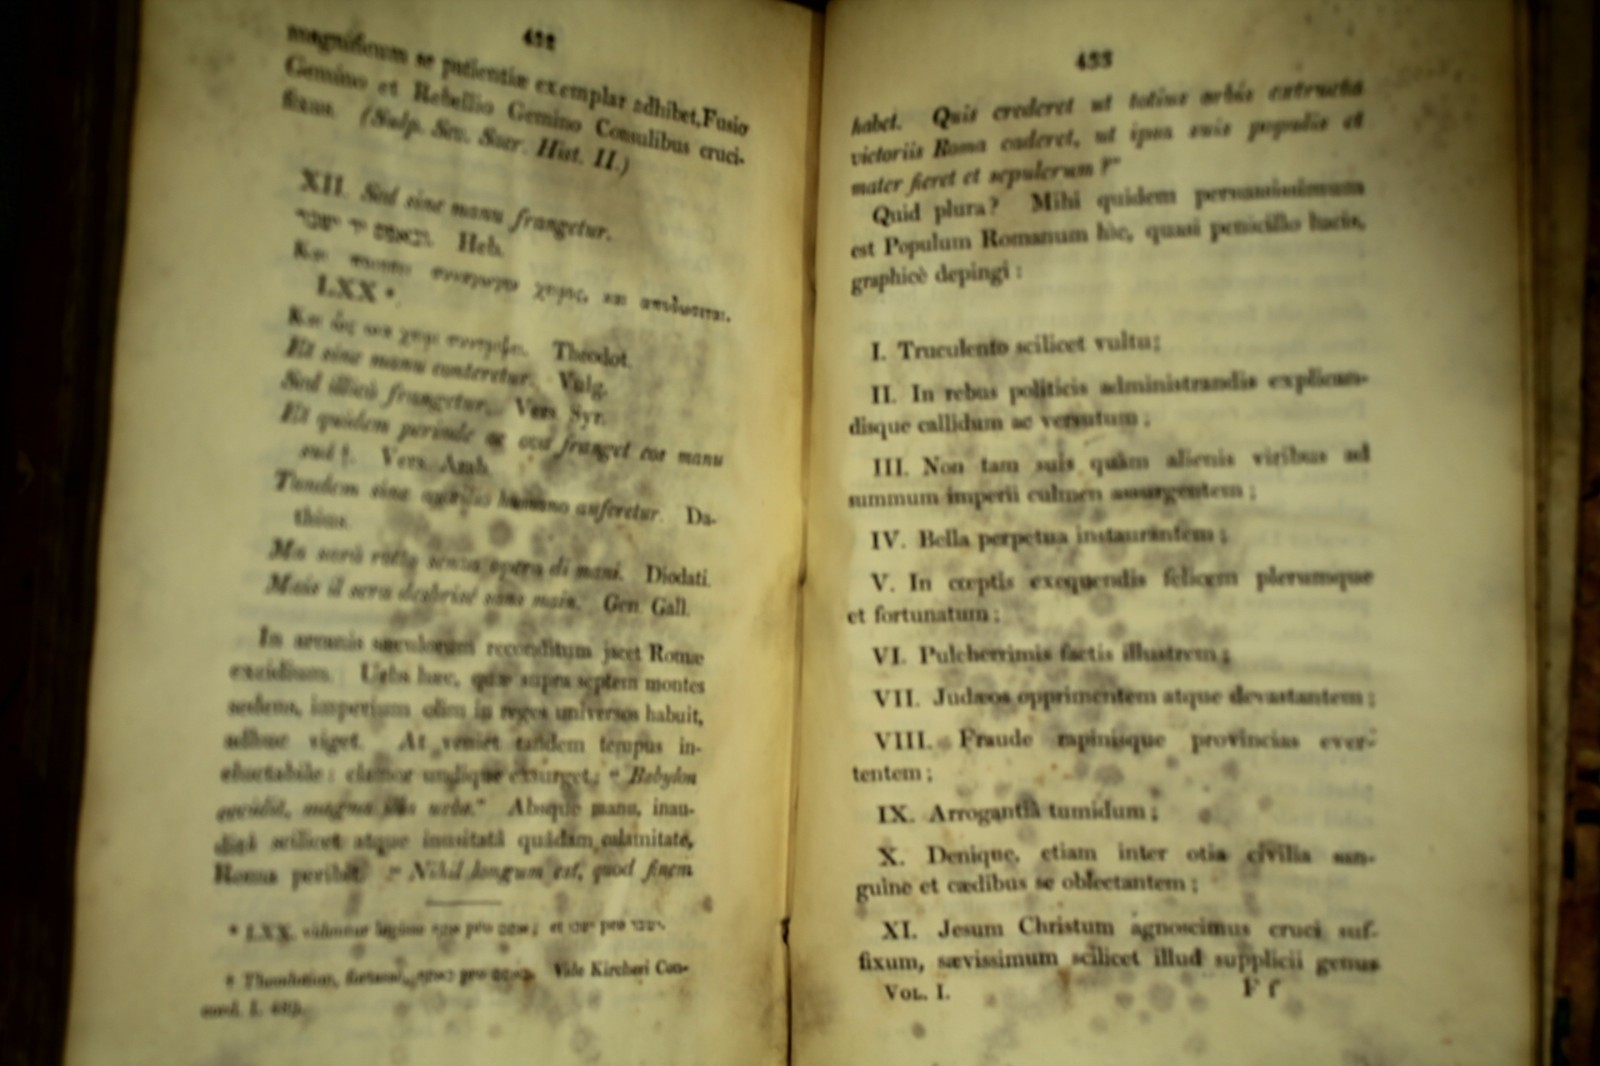 432
magnificum ac patientiæ exemplar adhibet, Fusio
Gemino et Rebellio Gemino Consulibus cruci-
fixus. (Sulp. Sev. Sacr. Hist. II.)
XII. Sed sine manu frangetur.
Heb.
LXX *.
Theodot.
Et sine manu conteretur. Vulg.
Sed illicò frangetur. Vers. Syr.
Et quidem perinde ac ova franget eos manu
suâ †. Vers. Arab.
Tandem sine auxilio humano auferetur. Da-
thius.
Ma sarà rotto senza opera di mani. Diodati.
Mais il sera desbrisé sans main. Gen. Gall.
In arcanis sæculorum reconditum jacet Romæ
excidium. Urbs hæc, quæ supra septem montes
sedens, imperium olim in reges universos habuit,
adhuc viget. At veniet tandem tempus in-
eluctabile: clamor undique exsurget; " Babylon
cecidit, magna illa urbs." Absque manu, inau-
ditâ scilicet atque inusitatâ quâdam calamitate,
Roma peribit. " Nihil longum est, quod finem
* LXX. videntur legisse pro ; et pro
pro Vide Kircheri Con-
433
habet. Quis crederet ut totius orbis extructa
victoriis Roma caderet, ut ipsa suis populis et
mater fieret et sepulcrum ?"
Quid plura? Mihi quidem persuasissimum
est Populum Romanum hîc, quasi penicillo lucis,
graphicè depingi :
I. Truculento scilicet vultu;
II. In rebus politicis administrandis explican-
disque callidum ac versutum;
III. Non tam suis quàm alienis viribus ad
summum imperii culmen assurgentem;
IV. Bella perpetua instaurantem;
V. In cœptis exequendis felicem plerumque
et fortunatum;
VI. Pulcherrimis factis illustrem;
VII. Judæos opprimentem atque devastantem;
VIII. Fraude rapinisque provincias ever-
tentem;
IX. Arrogantiâ tumidum;
X. Denique, etiam inter otia civilia san-
guine et cædibus se oblectantem;
XI. Jesum Christum agnoscimus cruci suf-
fixum, sævissimum scilicet illud supplicii genus
VOL. I. F f